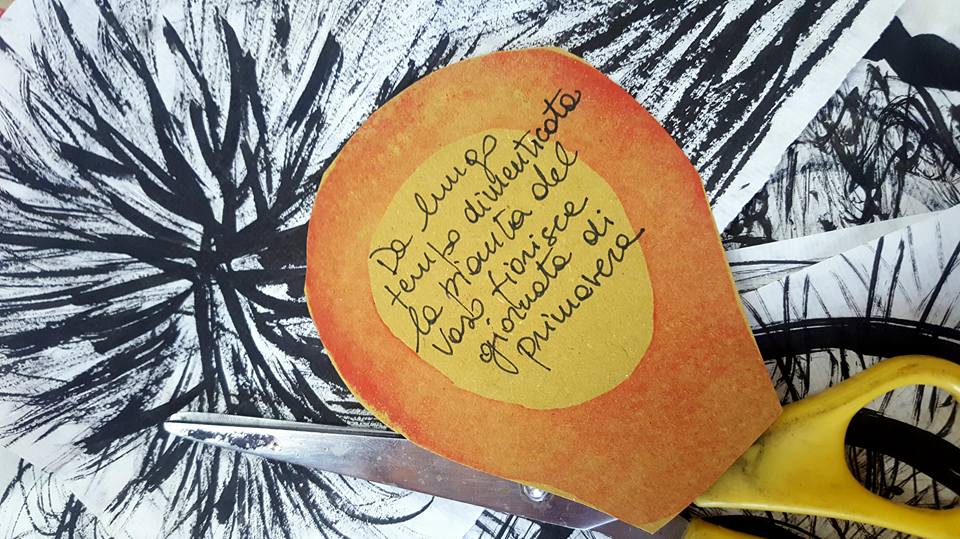 Da lungo
tempo dimenticata
la pianta del
vaso fiorisce
giornata di
primavera